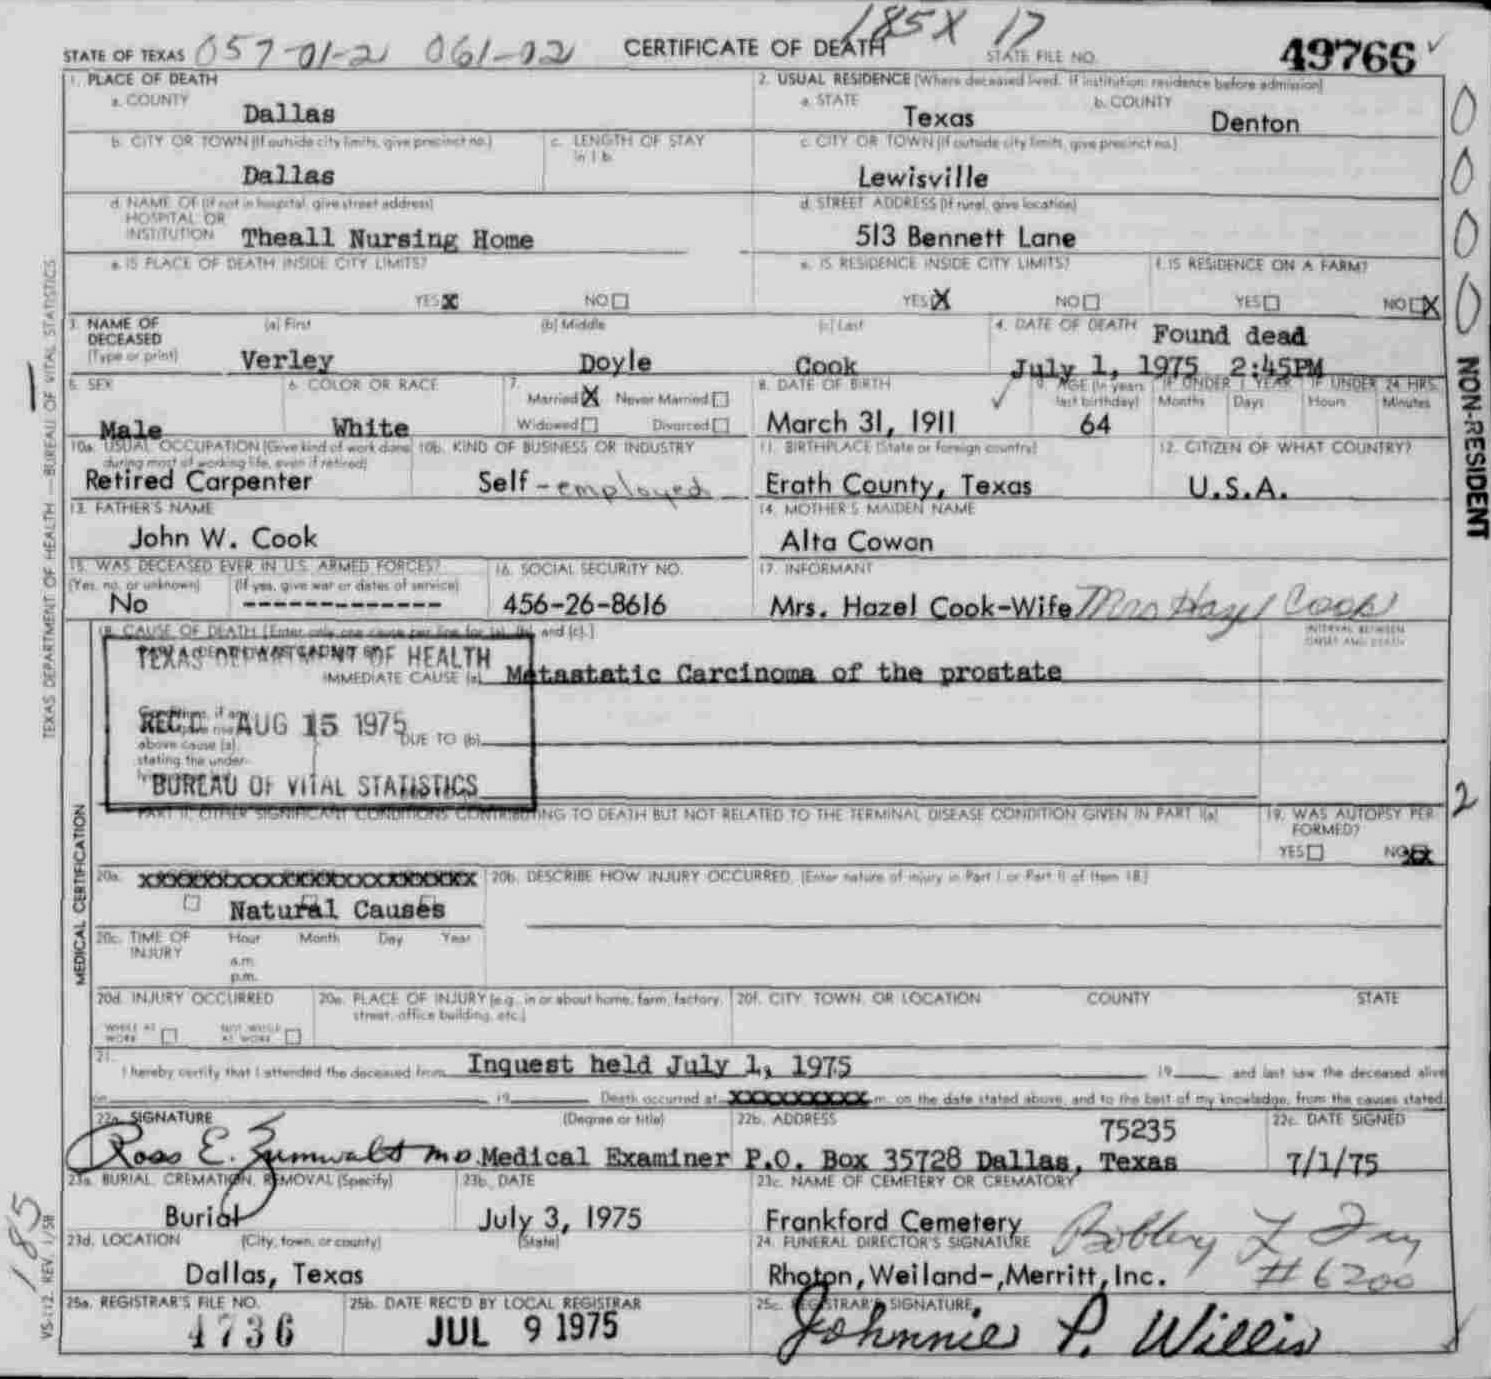 185X 17
STATE OF TEXAS 057-01-2 061-02 CERTIFICATE OF DEATH STATE FILE NO. 49766
1. PLACE OF DEATH
a. COUNTY
Dallas
2. USUAL RESIDENCE (Where deceased lived. If institution: residence before admission)
a. STATE
Texas
b. COUNTY
Denton
b. CITY OR TOWN (If outside city limits, give precinct no.)
Dallas
c. LENGTH OF STAY in 1 b.
c. CITY OR TOWN (If outside city limits, give precinct no.)
Lewisville
d. NAME OF (If not in hospital, give street address)
HOSPITAL OR
INSTITUTION Theall Nursing Home
d. STREET ADDRESS (If rural, give location)
513 Bennett Lane
e. IS PLACE OF DEATH INSIDE CITY LIMITS?
YES X NO
e. IS RESIDENCE INSIDE CITY LIMITS?
YES X NO
f. IS RESIDENCE ON A FARM?
YES NO X
3. NAME OF
DECEASED
(Type or print)
(a) First
Verley
(b) Middle
Doyle
(c) Last
Cook
4. DATE OF DEATH Found dead
July 1, 1975 2:45PM
5. SEX
Male
6. COLOR OR RACE
White
7.
Married X Never Married
Widowed Divorced
8. DATE OF BIRTH
March 31, 1911
9. AGE (In years last birthday)
64
IF UNDER 1 YEAR
Months Days
IF UNDER 24 HRS.
Hours Minutes
10a. USUAL OCCUPATION (Give kind of work done during most of working life, even if retired)
Retired Carpenter
10b. KIND OF BUSINESS OR INDUSTRY
Self-employed
11. BIRTHPLACE (State or foreign country)
Erath County, Texas
12. CITIZEN OF WHAT COUNTRY?
U.S.A.
13. FATHER'S NAME
John W. Cook
14. MOTHER'S MAIDEN NAME
Alta Cowan
15. WAS DECEASED EVER IN U.S. ARMED FORCES?
(Yes, no, or unknown) (If yes, give war or dates of service)
No -------------
16. SOCIAL SECURITY NO.
456-26-8616
17. INFORMANT
Mrs. Hazel Cook-Wife Mrs Hazel Cook
18. CAUSE OF DEATH [Enter only one cause per line for (a), (b), and (c).]
INTERVAL BETWEEN
ONSET AND DEATH
TEXAS DEPARTMENT OF HEALTH
IMMEDIATE CAUSE (a) Metastatic Carcinoma of the prostate
REC'D AUG 15 1975
above cause (a), DUE TO (b)
stating the under-
BUREAU OF VITAL STATISTICS
PART II. OTHER SIGNIFICANT CONDITIONS CONTRIBUTING TO DEATH BUT NOT RELATED TO THE TERMINAL DISEASE CONDITION GIVEN IN PART I(a)
19. WAS AUTOPSY PERFORMED?
YES NO X
20a. Natural Causes
20b. DESCRIBE HOW INJURY OCCURRED. (Enter nature of injury in Part I or Part II of Item 18.)
20c. TIME OF INJURY
Hour Month Day Year
a.m.
p.m.
20d. INJURY OCCURRED
WHILE AT WORK NOT WHILE AT WORK
20e. PLACE OF INJURY (e.g., in or about home, farm, factory, street, office building, etc.)
20f. CITY, TOWN, OR LOCATION COUNTY STATE
21.
I hereby certify that I attended the deceased from Inquest held July 1, 1975 19 and last saw the deceased alive
on 19 Death occurred at XXXXXXXXXX m. on the date stated above, and to the best of my knowledge, from the causes stated.
22a. SIGNATURE (Degree or title)
Ross E. Zumwalt MD. Medical Examiner
22b. ADDRESS
75235
P.O. Box 35728 Dallas, Texas
22c. DATE SIGNED
7/1/75
23a. BURIAL, CREMATION, REMOVAL (Specify)
Burial
23b. DATE
July 3, 1975
23c. NAME OF CEMETERY OR CREMATORY
Frankford Cemetery
23d. LOCATION (City, town, or county) (State)
Dallas, Texas
24. FUNERAL DIRECTOR'S SIGNATURE
Rhoton, Weiland-, Merritt, Inc. #6200
25a. REGISTRAR'S FILE NO.
4736
25b. DATE REC'D BY LOCAL REGISTRAR
JUL 9 1975
25c. REGISTRAR'S SIGNATURE
Johnnie P. Willis
TEXAS DEPARTMENT OF HEALTH—BUREAU OF VITAL STATISTICS
MEDICAL CERTIFICATION
VS-112, REV. 1/58
185
0
0
0
0
NON-RESIDENT
2